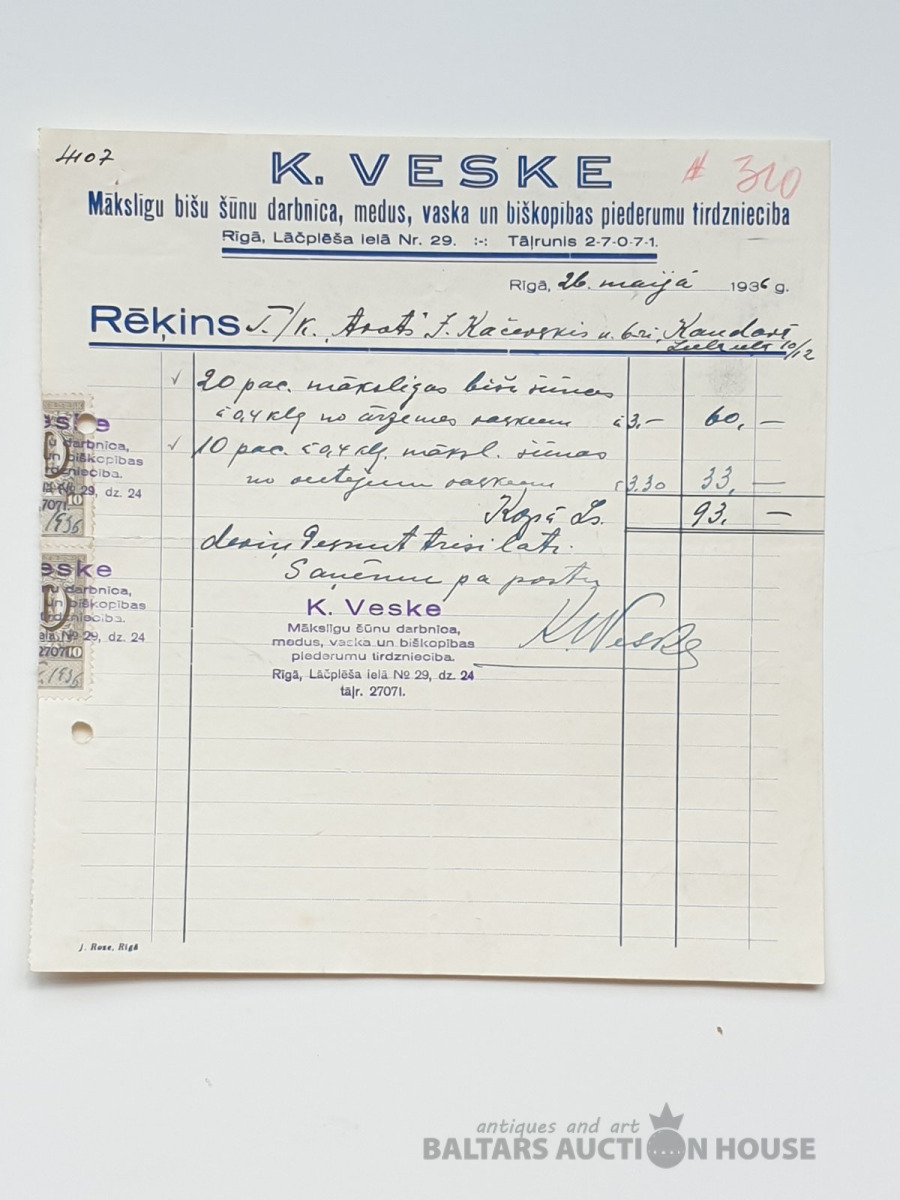 4107
K. VESKE
# 310
Mākslīgu bišu šūnu darbnīca, medus, vaska un biškopības piederumu tirdzniecība
Rīgā, Lāčplēša ielā Nr. 29. :-: Tāļrunis 2-7-0-7-1.
Rīgā, 26. maijā 1936 g.
Rēķins T./k. "Arots" J. Kačevskis u. b-ri, Kandavā
Lielā ielā 10/12
√ 20 pac. mākslīgas bišu šūnas
à 0,4 klg no ārzemes vaskiem à 3,- 60, —
√ 10 pac. à 0,4 klg. māksl. šūnas
no vietējiem vaskiem à 3.30 33, —
Kopā Ls. 93. —
deviņdesmit trīsi lati.
Saņēmu pa pastu
K. Veske
K. Veske
Mākslīgu šūnu darbnīca,
medus, vaska un biškopības
piederumu tirdzniecība.
Rīgā, Lāčplēša ielā № 29, dz. 24
tāļr. 27071.
eske
u darbnīca,
un biškopības
rdzniecība.
№ 29, dz. 24
27071.
10
1936
eske
nu darbnīca,
un biškopības
rdzniecība.
ielā № 29, dz. 24
27071
10
1936
J. Roze, Rīgā
antiques and art
BALTARS AUCTION HOUSE